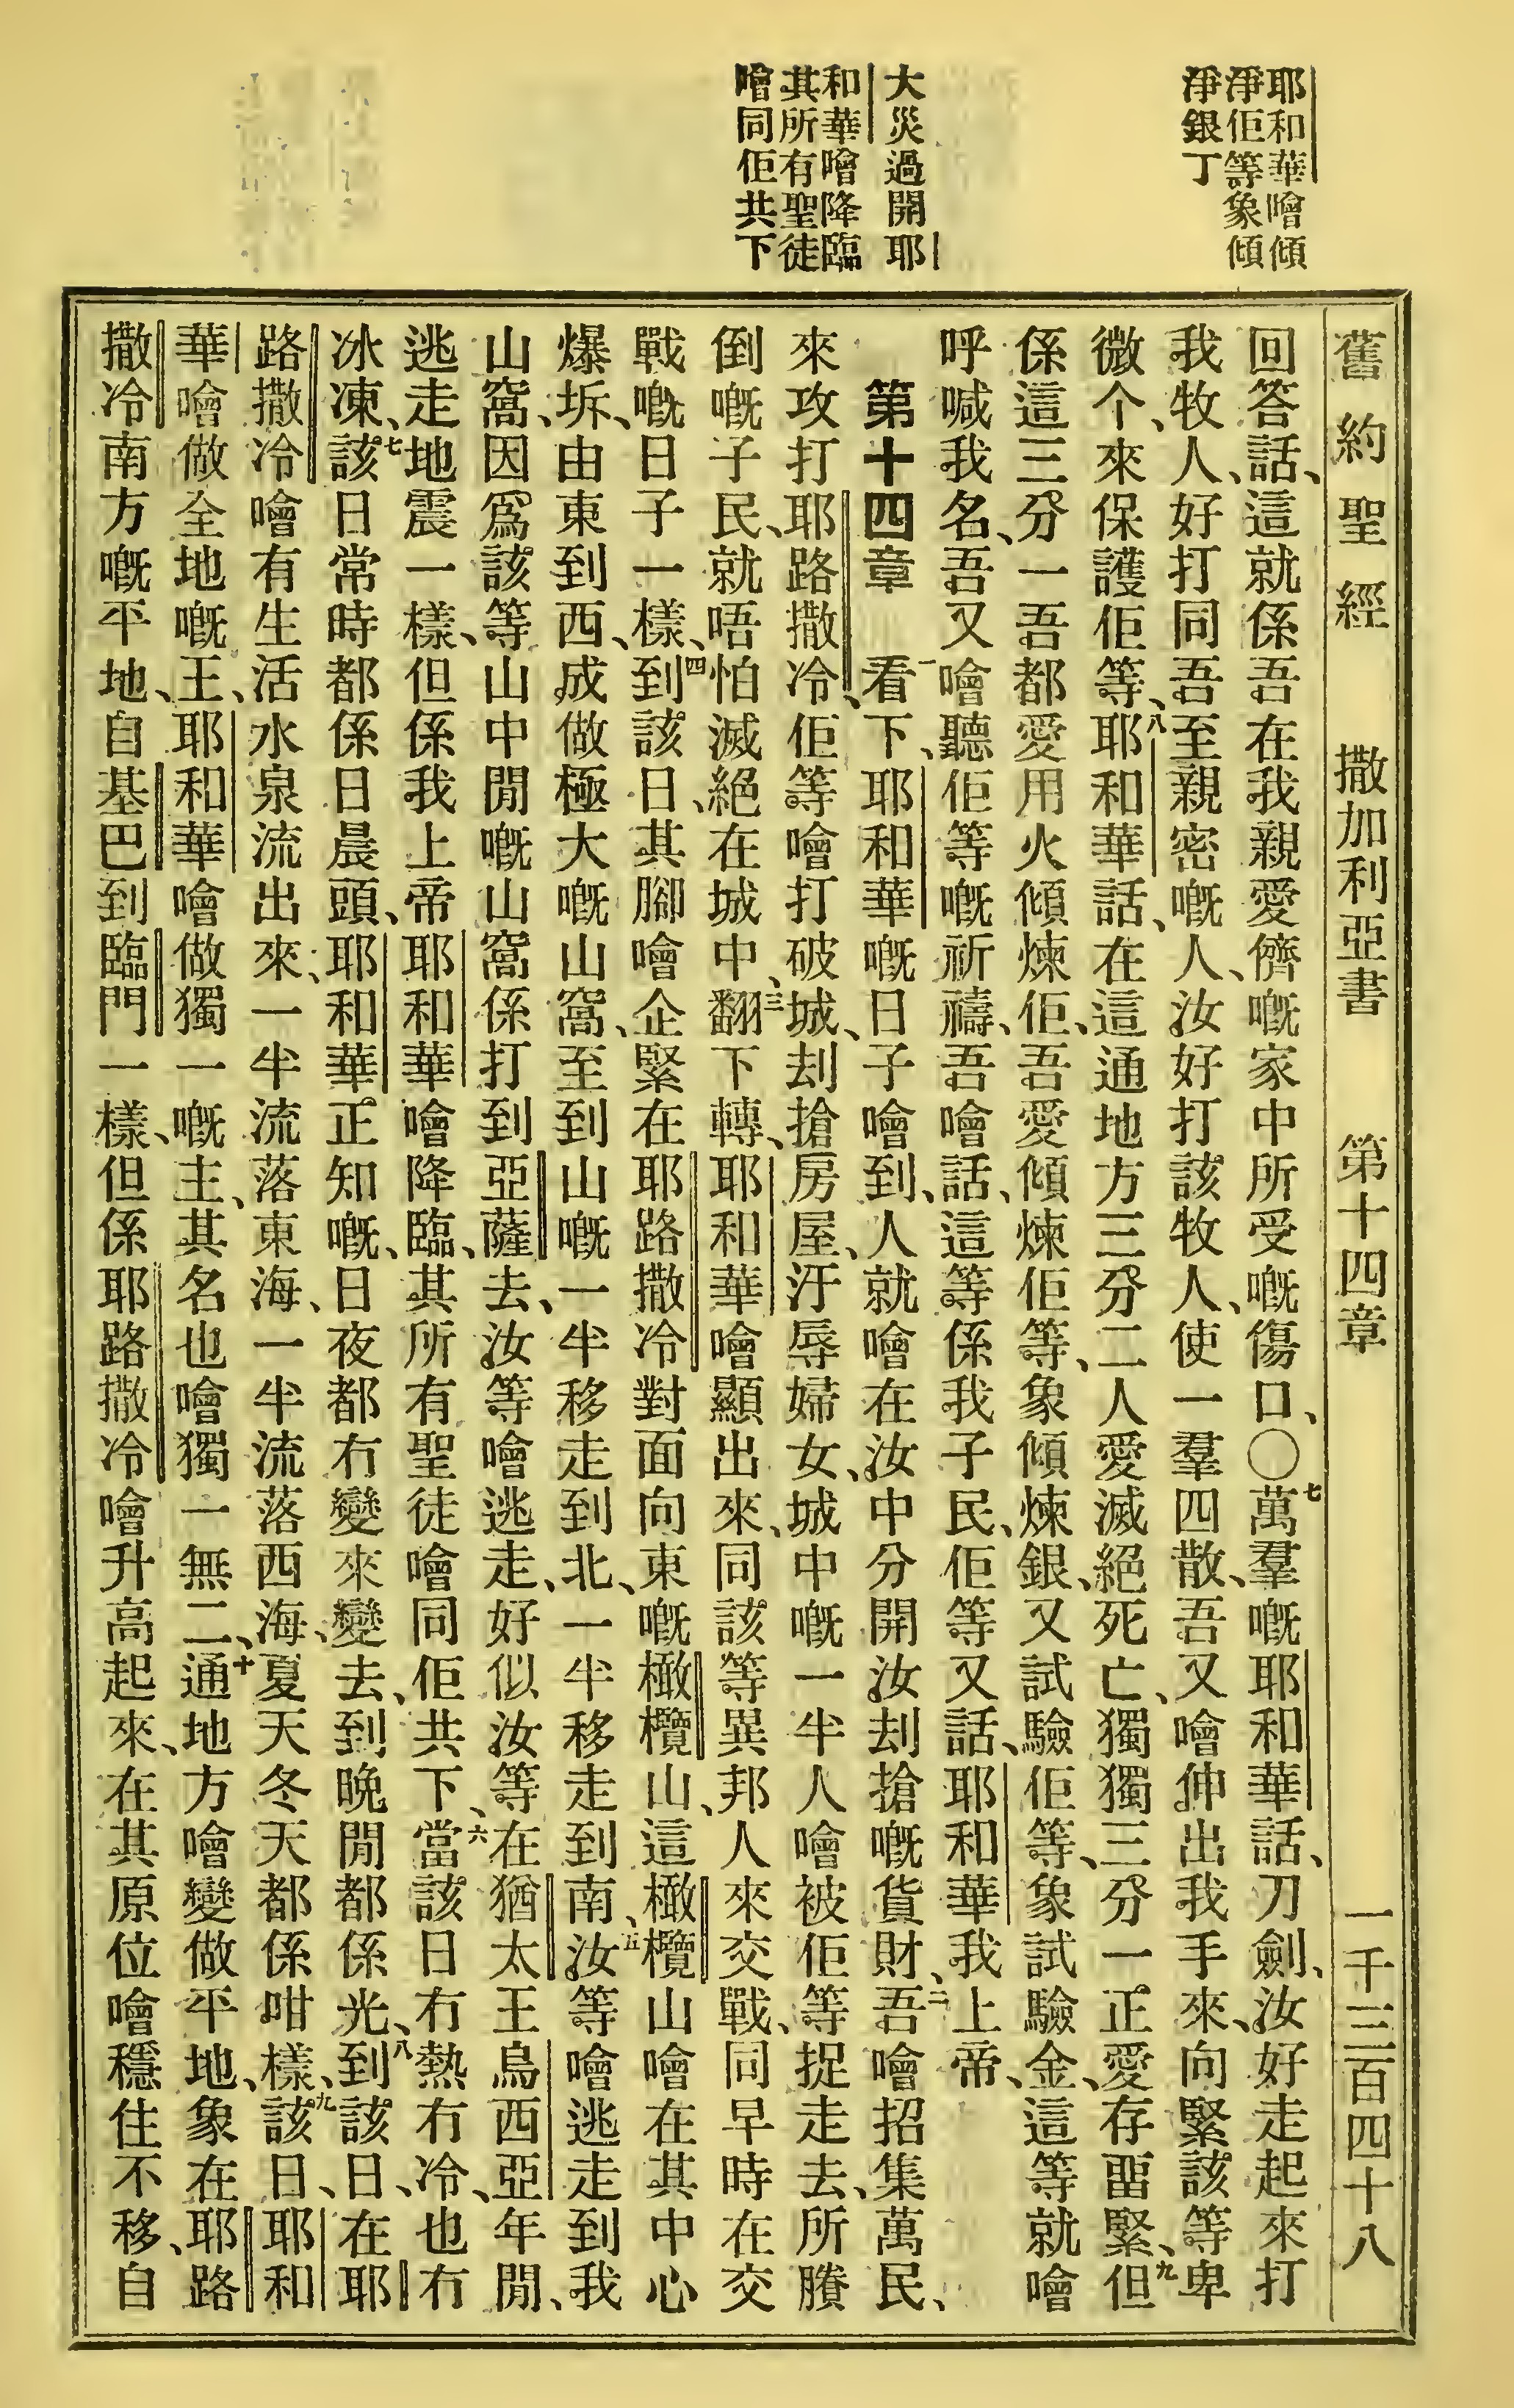 耶和華噲傾
淨佢等象傾
淨銀丁
大災過開耶
和華噲降臨
其所有聖徒
噲同佢共下
舊約聖經 撒加利亞書 第十四章 一千三百四十八
回答話、這就係吾在我親愛儕嘅家中所受嘅傷口、〇七萬羣嘅耶和華話、刀劍、汝好走起來打
我牧人、好打同吾至親密嘅人、汝好打該牧人、使一羣四散、吾又噲伸出我手來、向緊該等卑
微个、來保護佢等、八耶和華話、在這通地方三分二人愛滅絕死亡、獨獨三分一正愛存畱緊、九但
係這三分一吾都愛用火傾煉佢、吾愛傾煉佢等、象傾煉銀、又試驗佢等、象試驗金、這等就噲
呼喊我名、吾又噲聽佢等嘅祈禱、吾噲話、這等係我子民、佢等又話、耶和華我上帝、
第十四章 一看下、耶和華嘅日子噲到、人就噲在汝中分開汝刦搶嘅貨財、二吾噲招集萬民、
來攻打耶路撒冷、佢等噲打破城、刦搶房屋、汙辱婦女、城中嘅一半人噲被佢等捉走去、所賸
倒嘅子民、就唔怕滅絕在城中、三翻下轉、耶和華噲顯出來、同該等異邦人來交戰、同早時在交
戰嘅日子一樣、四到該日、其腳噲企緊在耶路撒冷對面向東嘅橄欖山、這橄欖山噲在其中心
爆坼、由東到西、成做極大嘅山窩、至到山嘅一半移走到北、一半移走到南、五汝等噲逃走到我
山窩、因爲該等山中閒嘅山窩係打到亞薩去、汝等噲逃走、好似汝等在猶太王烏西亞年閒、
逃走地震一樣、但係我上帝耶和華噲降臨、其所有聖徒噲同佢共下、六當該日冇熱冇冷、也冇
冰凍、七該日常時都係日晨頭、耶和華正知嘅、日夜都冇變來變去、到晚閒都係光、八到該日、在耶
路撒冷噲有生活水泉流出來、一半流落東海、一半流落西海、夏天冬天都係咁樣、九該日、耶和
華噲做全地嘅王、耶和華噲做獨一嘅主、其名也噲獨一無二、十通地方噲變做平地、象在耶路
撒冷南方嘅平地、自基巴到臨門一樣、但係耶路撒冷噲升高起來、在其原位噲穩住不移、自